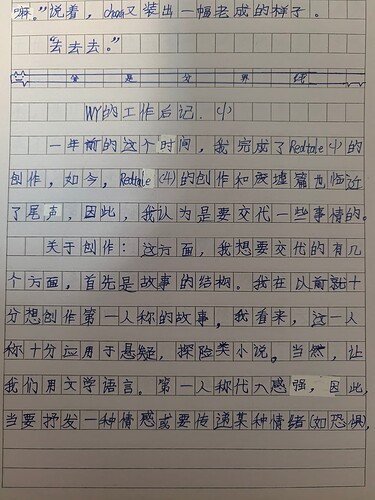 嘛。”说着，chara又装出一幅老成的样子。
“去去去。”
常是分界线
WY的工作后记.(小)
一年前的这个时间，我完成了Redtale(小)的
创作，如今，Redtale(4)的创作和废墟篇也临近
了尾声，因此，我认为是要交代一些事情的。
关于创作：这方面，我想要交代的有几
个方面，首先是故事的结构。我在以前就十
分想创作第一人称的故事。我看来，这一人
称十分应用于悬疑，探险类小说。当然，让
我们用文学语言。第一人称代入感强，因此，
当要抒发一种情感或要传递某种情绪(如恐惧)，